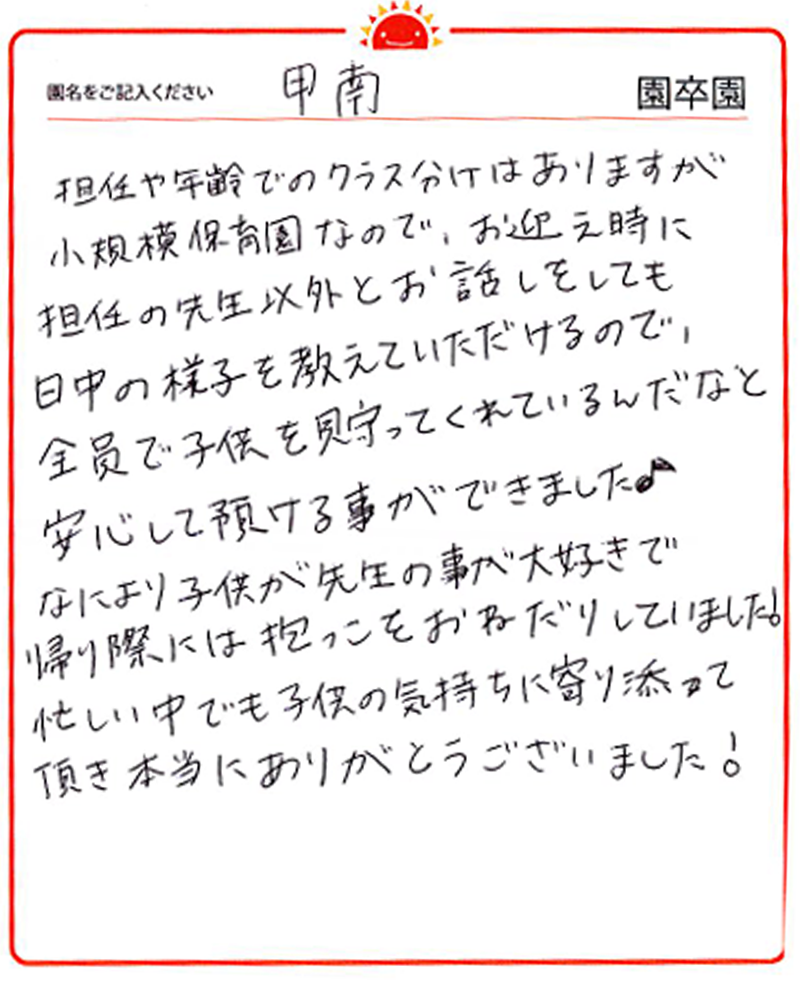 園名をご記入ください 甲南 園卒園
担任や年齢でのクラス分けはありますが
小規模保育園なので、お迎え時に
担任の先生以外とお話しをしても
日中の様子を教えていただけるので、
全員で子供を見守ってくれているんだなと
安心して預ける事ができました♪
なにより子供が先生の事が大好きで
帰り際には抱っこをおねだりしていました!
忙しい中でも子供の気持ちに寄り添って
頂き本当にありがとうございました!